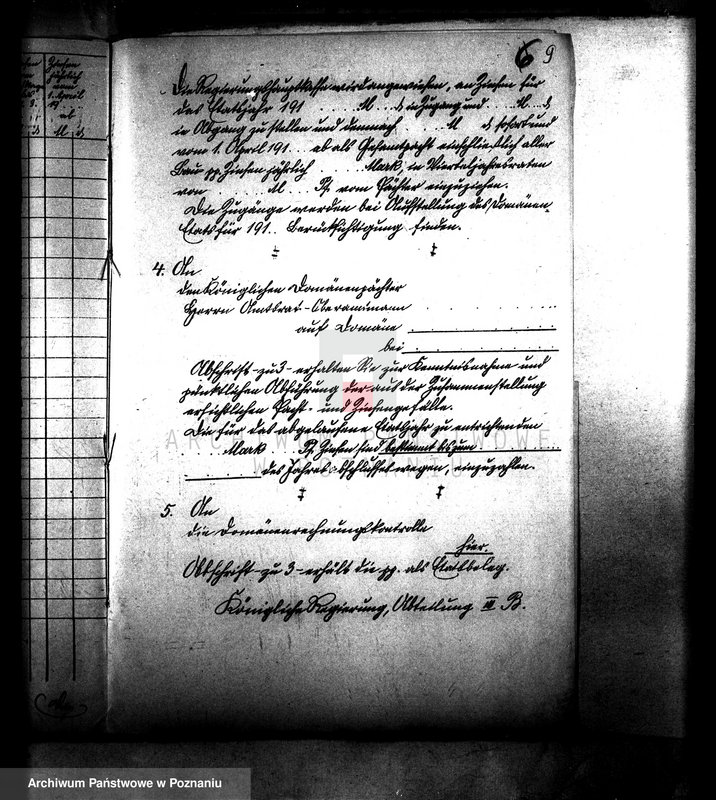 6 9
Die Regierungshauptkasse wird angewiesen, an Zinsen für
das Etatsjahr 191 . . . . M . . d in Zugang und . . . M . . d
in Abgang zu stellen und demnach . . . . M . . d sofort und
vom 1. April 191 . . . ab als Gesamtpacht einschließlich aller
Bau pp. Zinsen jährlich . . . . . Mark, in Vierteljahresraten
von . . . . . M . . . Pf. vom Pächter einzuziehen.
Die Zugänge werden bei Aufstellung des Domänen-
Etats für 191 . . Berücksichtigung finden.
4. An
den Königlichen Domänenpächter
Herrn Amtsrat-Oberamtmann . . . . . . .
auf Domäne
bei
Abschrift zu 3 erhalten Sie zur Kenntnisnahme und
pünktlichen Abführung der aus der Zusammenstellung
ersichtlichen Pacht- und Zinsengefälle.
Die für das abgelaufene Etatsjahr zu entrichtenden
. . . . Mark . . . . Pf. Zinsen sind bestimmt bis zum
des Jahresabschlusses wegen, einzuzahlen.
5. An
die Domänenrechnungskontrolle
hier.
Abschrift zu 3 erhält die pp. als Etatsbeleg.
Königliche Regierung, Abteilung III B.
Zinsen
jährlich
vom
1. April
19
ab
M d
ARCHIWUM PAŃSTWOWE
W POZNANIU
Archiwum Państwowe w Poznaniu